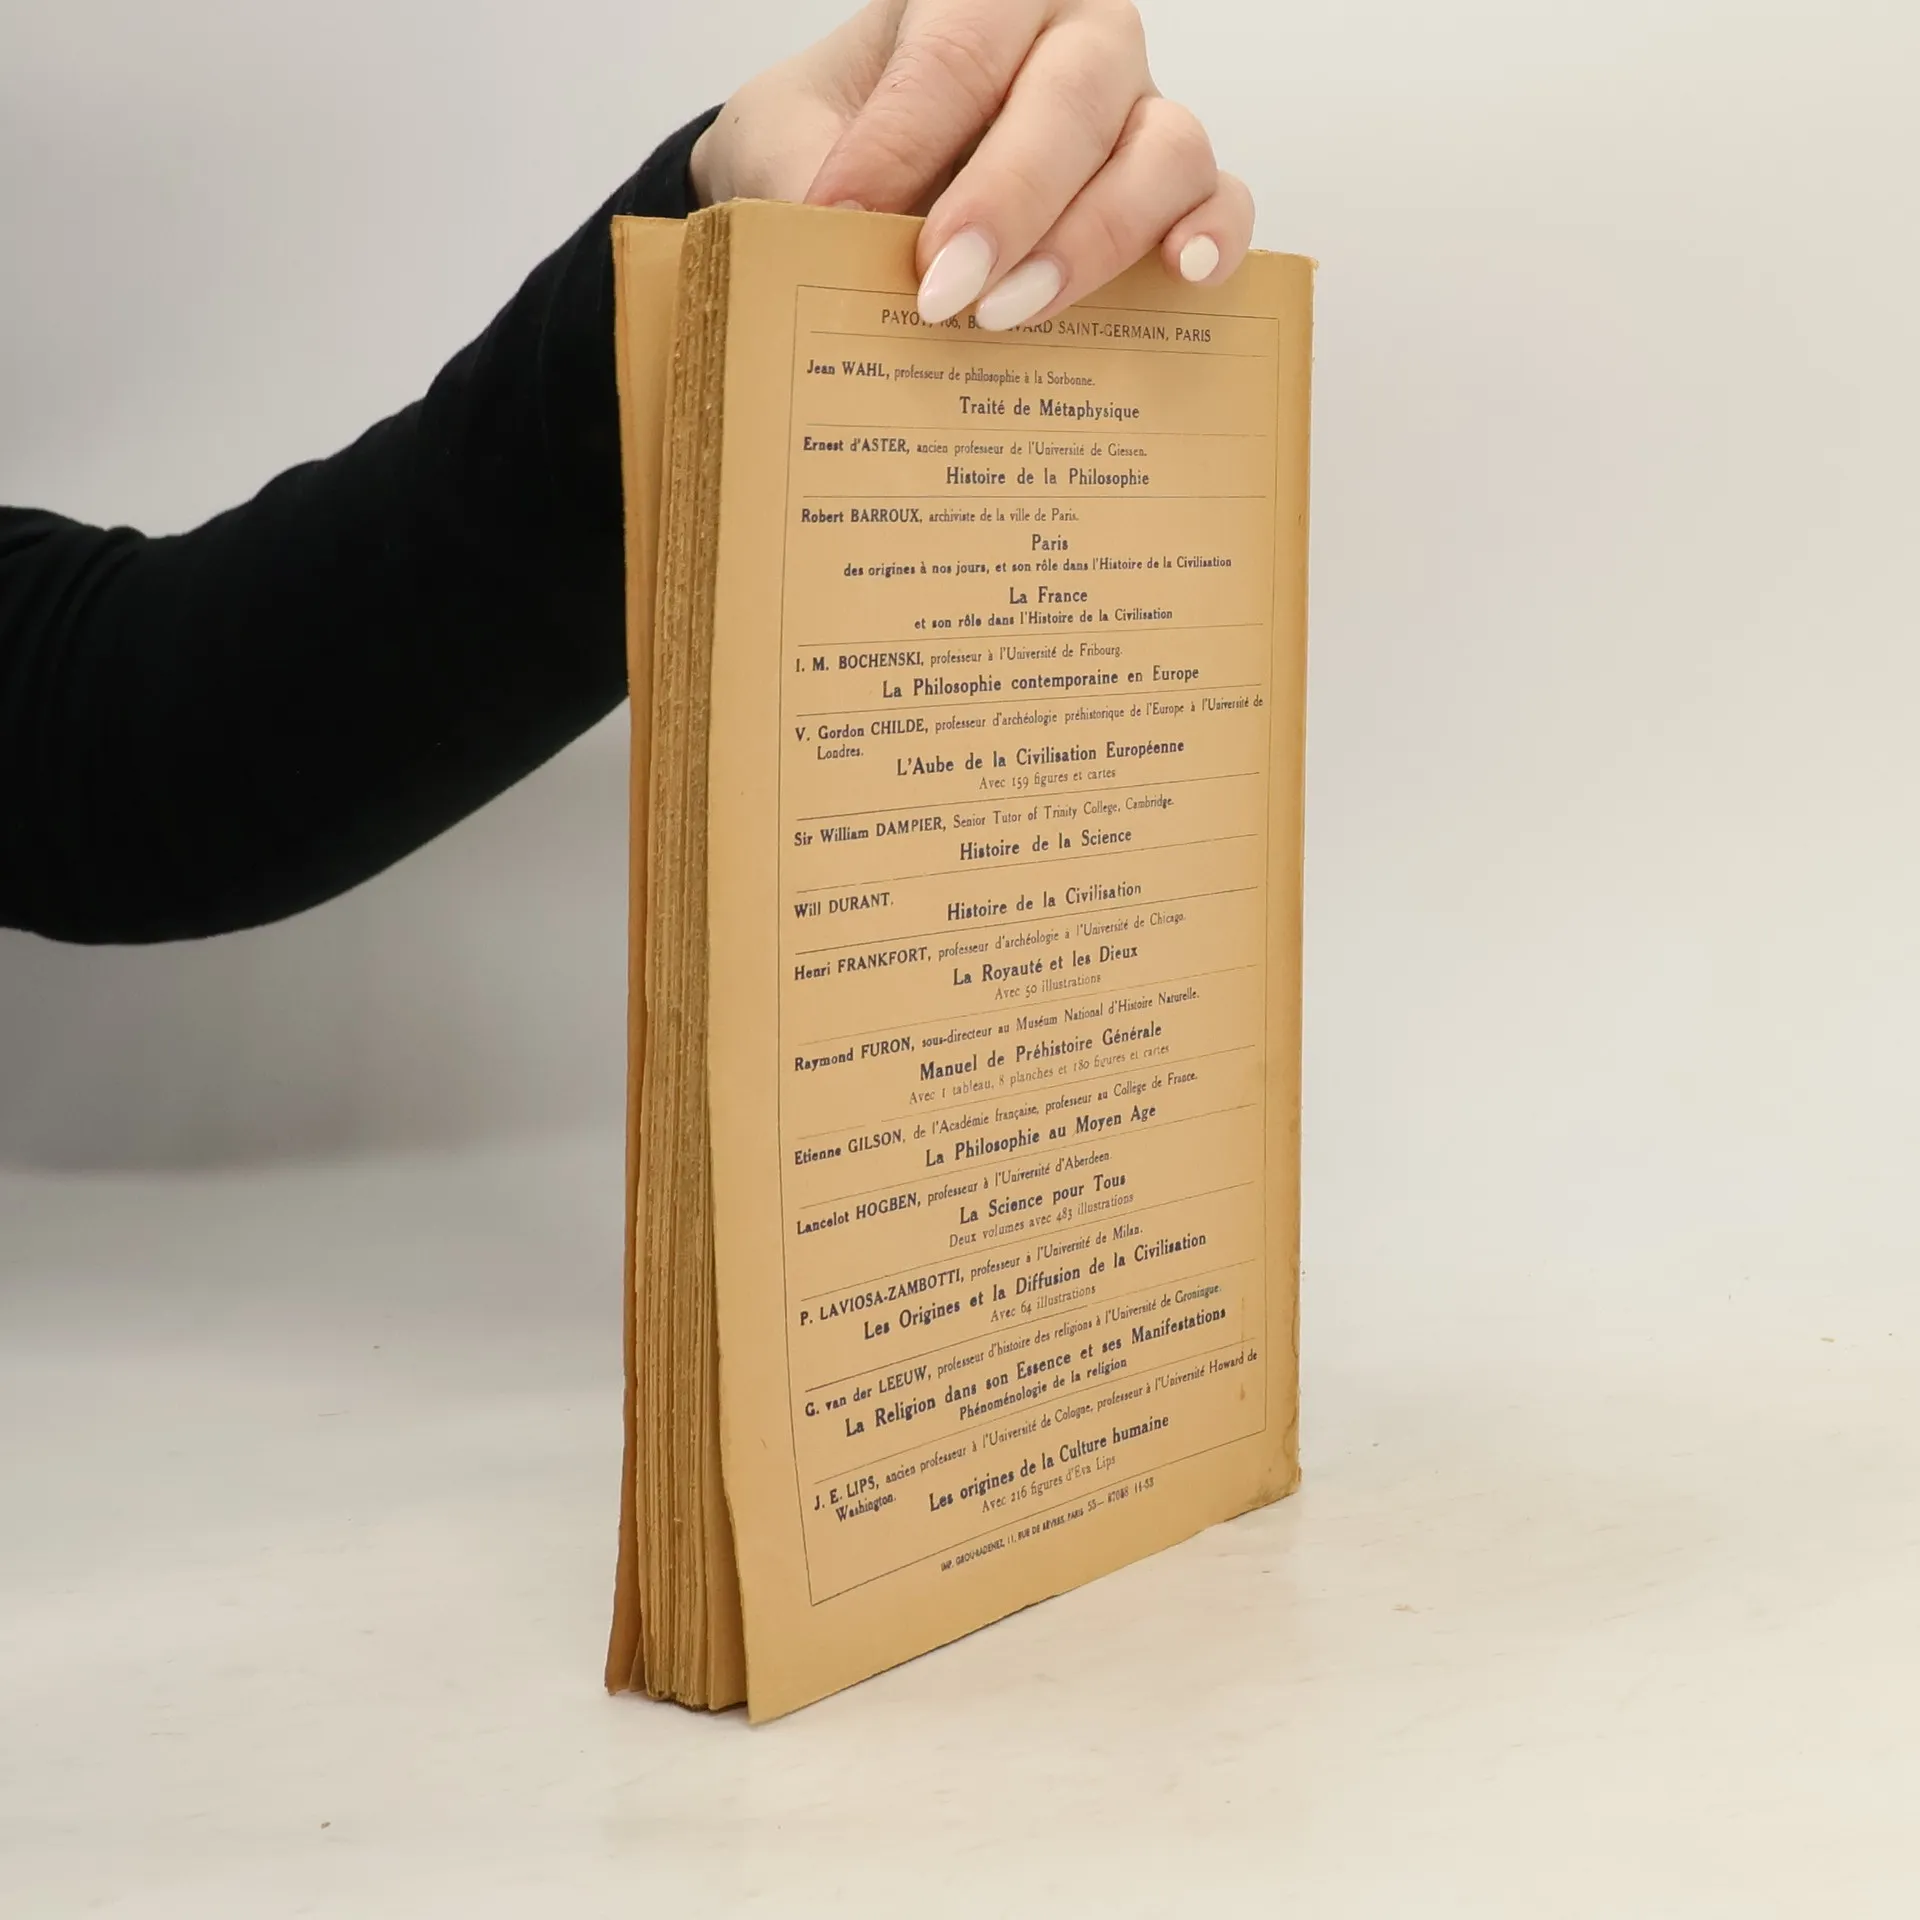 PAYOT, 106, BOULEVARD SAINT-GERMAIN, PARIS
Jean WAHL, professeur de philosophie à la Sorbonne.
Traité de Métaphysique
Ernest d'ASTER, ancien professeur de l'Université de Giessen.
Histoire de la Philosophie
Robert BARROUX, archiviste de la ville de Paris.
Paris
des origines à nos jours, et son rôle dans l'Histoire de la Civilisation
La France
et son rôle dans l'Histoire de la Civilisation
I. M. BOCHENSKI, professeur à l'Université de Fribourg.
La Philosophie contemporaine en Europe
V. Gordon CHILDE, professeur d'archéologie préhistorique de l'Europe à l'Université de
Londres.
L'Aube de la Civilisation Européenne
Avec 159 figures et cartes
Sir William DAMPIER, Senior Tutor of Trinity College, Cambridge.
Histoire de la Science
Will DURANT.
Histoire de la Civilisation
Henri FRANKFORT, professeur d'archéologie à l'Université de Chicago.
La Royauté et les Dieux
Avec 50 illustrations
Raymond FURON, sous-directeur au Muséum National d'Histoire Naturelle.
Manuel de Préhistoire Générale
Avec 1 tableau, 8 planches et 180 figures et cartes
Etienne GILSON, de l'Académie française, professeur au Collège de France.
La Philosophie au Moyen Age
Lancelot HOGBEN, professeur à l'Université d'Aberdeen.
La Science pour Tous
Deux volumes avec 483 illustrations
P. LAVIOSA-ZAMBOTTI, professeur à l'Université de Milan.
Les Origines et la Diffusion de la Civilisation
Avec 64 illustrations
G. van der LEEUW, professeur d'histoire des religions à l'Université de Groningue.
La Religion dans son Essence et ses Manifestations
Phénoménologie de la religion
J. E. LIPS, ancien professeur à l'Université de Cologne, professeur à l'Université Howard de
Washington.
Les origines de la Culture humaine
Avec 216 figures d'Eva Lips
IMP. GROU-RADENEZ, 11, RUE DE SÈVRES, PARIS 53— 11-53